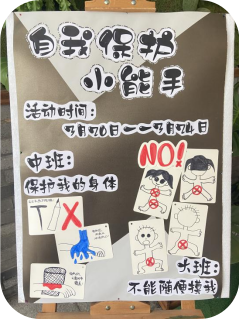 自我保护
小能手
活动时间:
3月20日——3月24日
中班:
保护我的身体
NO!
大班:
不能随便摸我